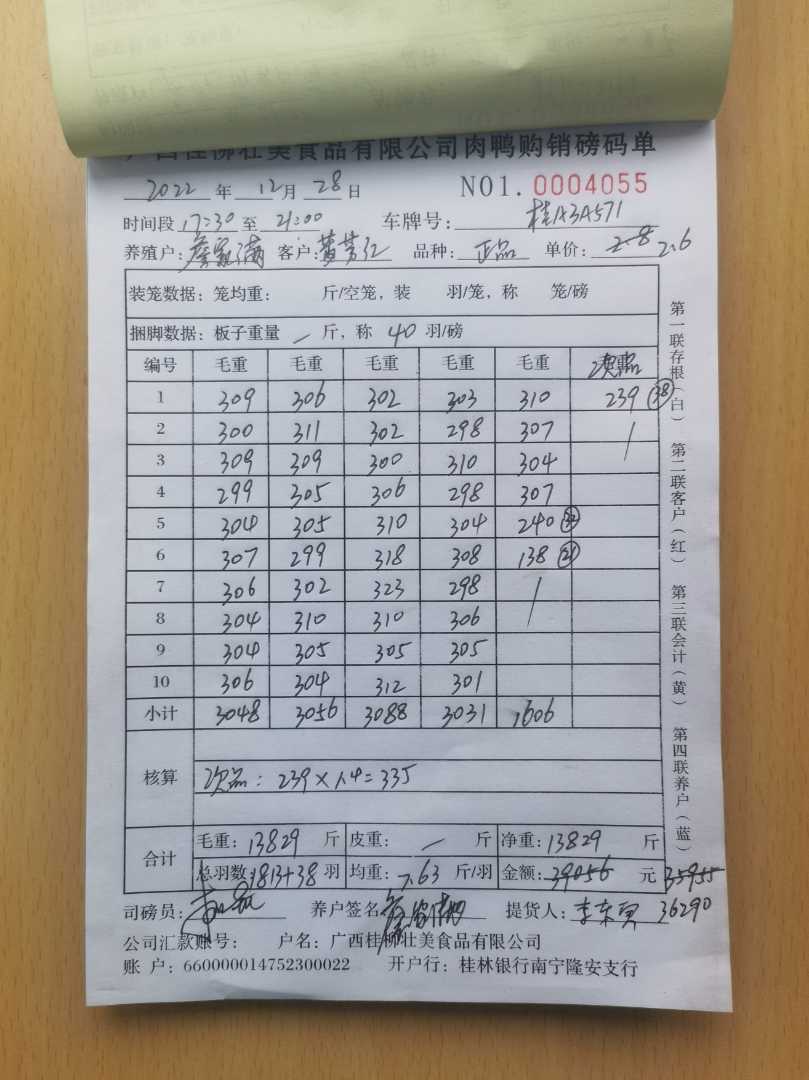 广西桂柳壮美食品有限公司肉鸭购销磅码单
2022 年 12 月 28 日 NO1. 0004055
时间段 17:30 至 21:00 车牌号: 桂A3A571
养殖户: 客户: 黄芳红 品种: 正品 单价: 2.8 2.6
装笼数据: 笼均重: 斤/空笼, 装 羽/笼, 称 笼/磅
捆脚数据: 板子重量 — 斤, 称 40 羽/磅
编号 毛重 毛重 毛重 毛重 毛重 次品
1 309 306 302 303 310 239 (38)
2 300 311 302 298 307 /
3 309 309 300 310 304
4 299 305 306 298 307
5 304 305 310 304 240
6 307 299 318 308 138 (21)
7 306 302 323 298 /
8 304 310 310 306
9 304 305 305 305
10 306 304 312 301
小计 3048 3056 3088 3031 1606
核算 次品: 239×1.4=335
合计 毛重: 13829 斤 皮重: — 斤 净重: 13829 斤
总羽数: 1813+38 羽 均重: 7.63 斤/羽 金额: 39056 元 35955
司磅员: 养户签名 提货人: 36290
公司汇款账号: 户名: 广西桂柳壮美食品有限公司
账 户: 660000014752300022 开户行: 桂林银行南宁隆安支行
第一联存根(白) 第二联客户(红) 第三联会计(黄) 第四联养户(蓝)